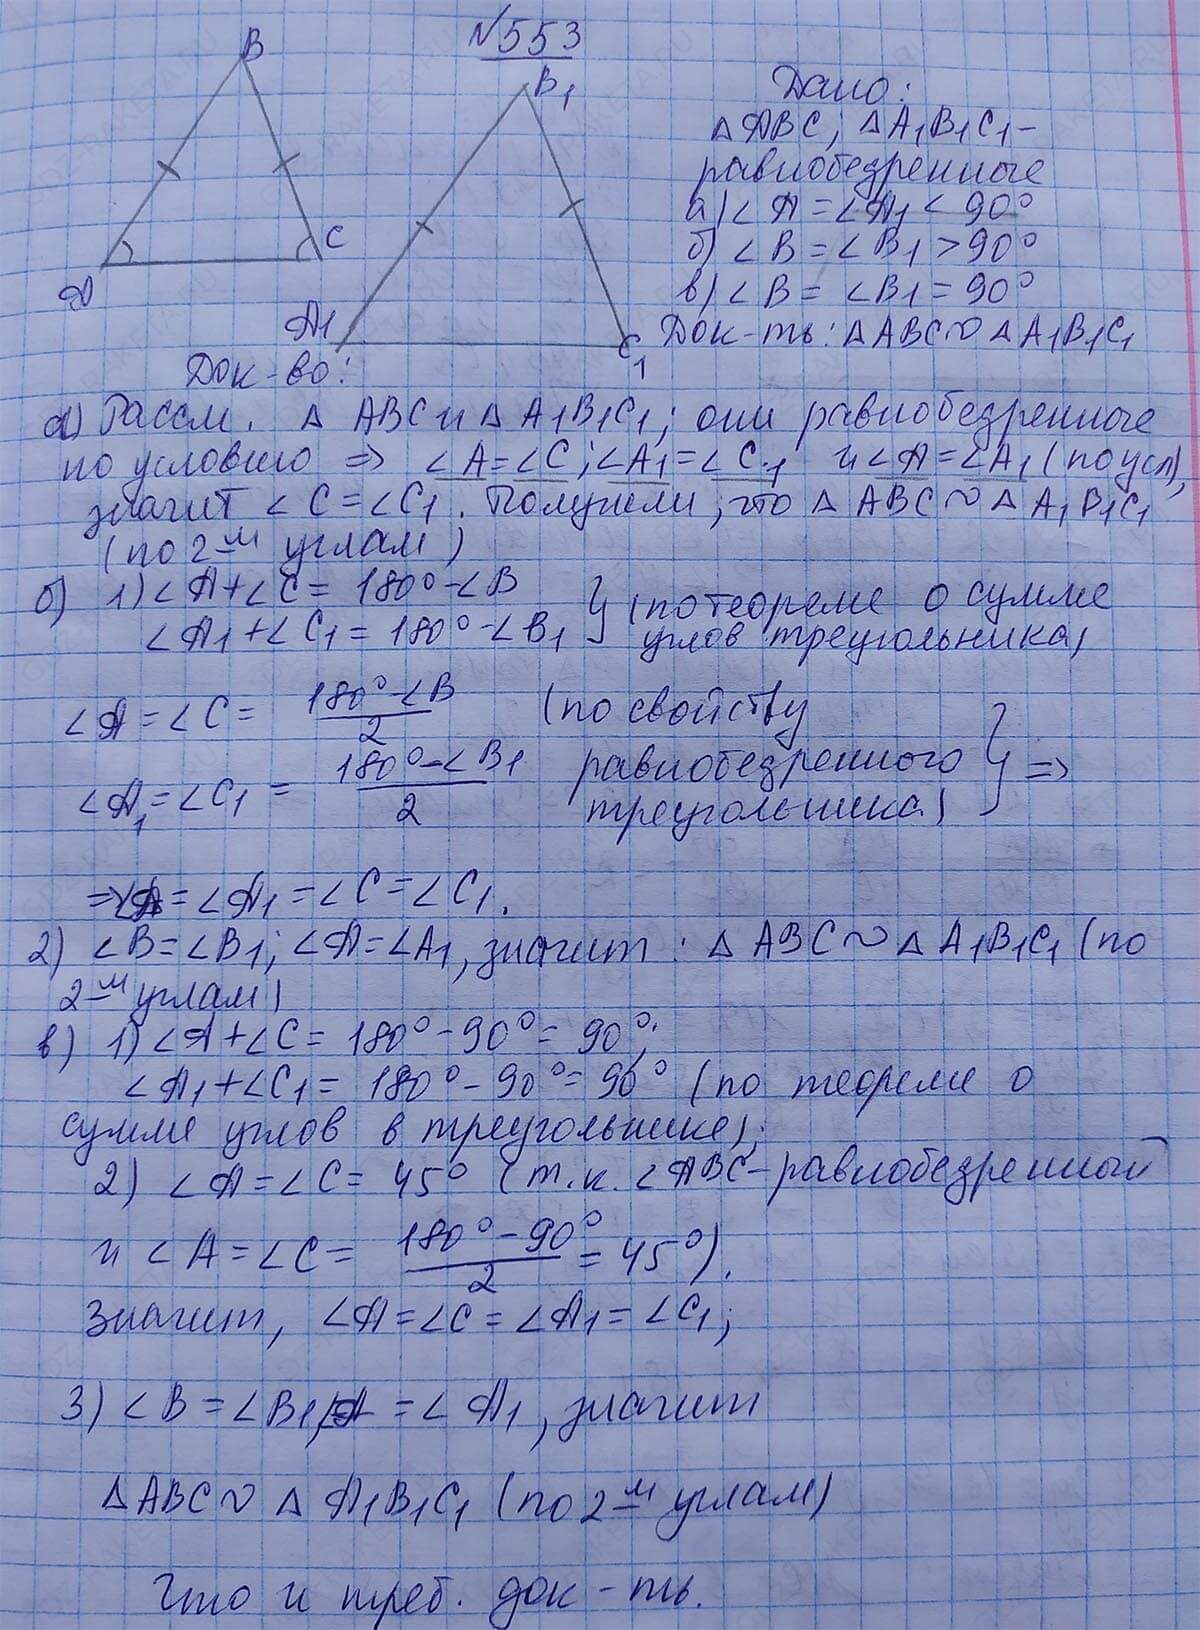 №553
B
B1
A
C
A1
C1
Дано:
△ABC; △A1B1C1-
равнобедренные
а) ∠A = ∠A1 < 90°
б) ∠B = ∠B1 > 90°
в) ∠B = ∠B1 = 90°
Док-ть: △ABC∾△A1B1C1
Док-во:
а) Рассм. △ ABC и △ A1B1C1; они равнобедренные
по условию ⇒ ∠A=∠C; ∠A1=∠C1 и ∠A=∠A1 (по усл),
значит ∠C=∠C1. Получили, что △ ABC∾△ A1B1C1
(по 2-м углам)
б) 1) ∠A+∠C= 180°-∠B
∠A1+∠C1= 180°-∠B1 } (по теореме о сумме
углов треугольника)
∠A=∠C= (180°-∠B)/2 (по свойству
∠A1=∠C1 = (180°-∠B1)/2 равнобедренного } ⇒
треугольника)
⇒∠A=∠A1=∠C=∠C1.
2) ∠B=∠B1; ∠A=∠A1, значит: △ABC∾△A1B1C1 (по
2-м углам)
в) 1) ∠A+∠C= 180°-90°= 90°;
∠A1+∠C1= 180°-90°= 90° (по теореме о
сумме углов в треугольнике);
2) ∠A=∠C= 45° (т.к. ∠ABC-равнобедренный
и ∠A=∠C= (180°-90°)/2 = 45°).
Значит, ∠A=∠C=∠A1=∠C1;
3) ∠B=∠B1, ∠A =∠A1, значит
△ABC∾ △ A1B1C1 (по 2-м углам)
Что и треб. док-ть.